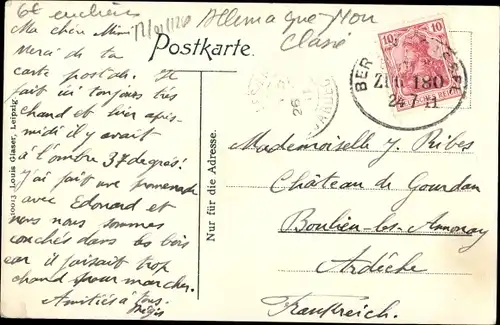 Allemagne Non
Classé
Postkarte.
Ma chère Mimi
Merci de ta
carte postale. Il
fait ici toujours très
chaud et hier après-
midi il y avait
à l'ombre 37 degrés!
J'ai fait une promenade
avec Edouard et
nous nous sommes
couchés dans les bois
car il faisait trop
chaud pour marcher.
Amitiés à tous.
Régis
10013 Louis Glaser, Leipzig.
Nur für die Adresse.
10 10
BER
ZUG 180
24.7.11
26
Mademoiselle J. Ribes
Château de Gourdan
Boulieu-les-Annonay
Ardèche
Frankreich.